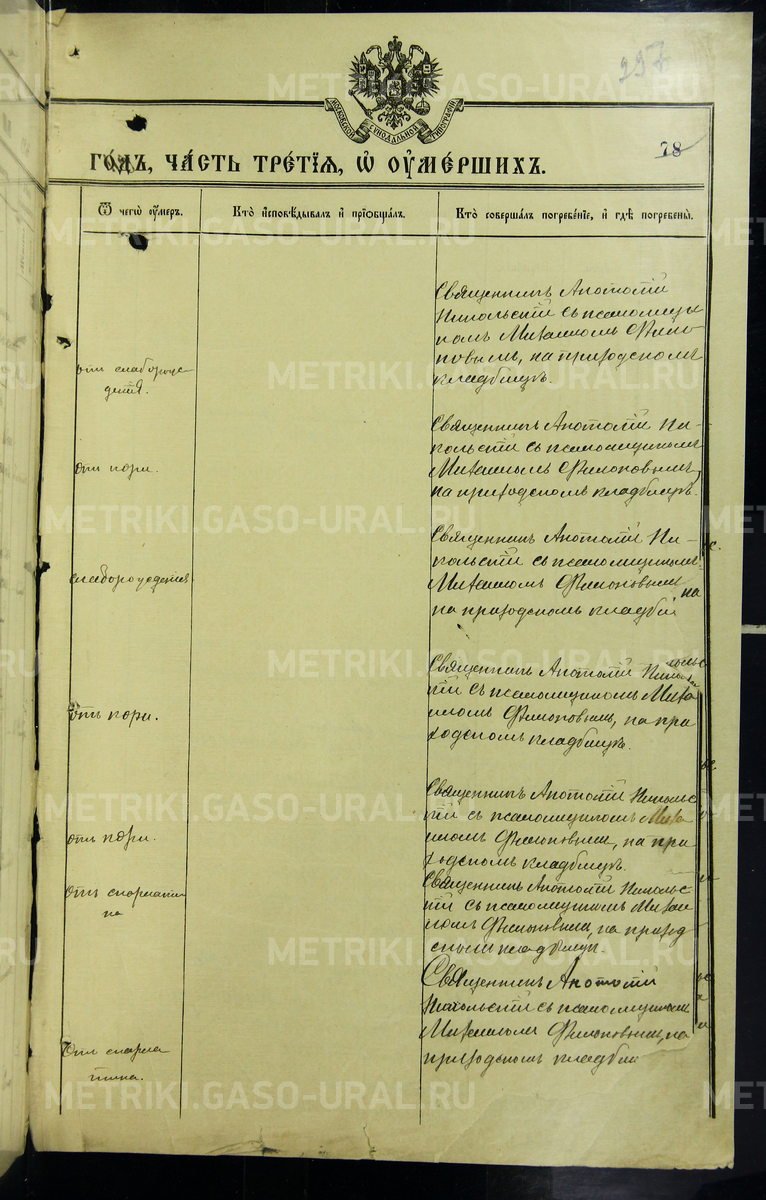 297
МОСКОВСКОЙ СѴНОДАЛЬНОЙ ТИПОГРАФІИ
78
ГО́ДЪ, ЧА́СТЬ ТРЕ́ТІѦ, Ѡ҆ ОУ҆МЕ́РШИХЪ.
Ѿ чегѡ̀ оу҆́меръ.
Кто̀ и҆сповѣ́дывалъ и҆ прїѡбща́лъ.
Кто̀ соверша́лъ погребе́нїе, и҆ гдѣ̀ погребены̀.
отъ слаборож-
денія.
Священникъ Анатолій
Никольскій съ псаломщи
комъ Михаиломъ Филип-
повымъ, на приходскомъ
кладбищѣ.
отъ кори.
Священникъ Анатолій Ни-
кольскій съ псаломщикомъ
Михаиломъ Филипповымъ,
на приходскомъ кладбищѣ.
слаборожденія
Священникъ Анатолій Ни-
кольскій съ псаломщикомъ
Михаиломъ Филипповымъ на
на приходскомъ кладби
отъ кори.
Священникъ Анатолій Никольс
кій съ псаломщикомъ Миха
иломъ Филипповымъ, на при
ходскомъ кладбищѣ.
отъ кори.
Священникъ Анатолій Никольс
кій съ псаломщикомъ Миха
иломъ Филипповымъ, на при
ходскомъ кладбищѣ.
отъ скарлати
на
Священникъ Анатолій Никольс
кій съ псаломщикомъ Михаи
ломъ Филипповымъ, на приход
скомъ кладбищѣ.
Отъ скарла
тина.
Священникъ Анатолій
Никольскій съ псаломщикомъ
Михаиломъ Филипповымъ, на
приходскомъ кладби
METRIKI.GASO-URAL.RU
METRIKI.GASO-URAL.RU
METRIKI.GASO-URAL.RU
METRIKI.GASO-URAL.RU
METRIKI.GASO-URAL.RU
METRIKI.GASO-URAL.RU
METRIKI.GASO-URAL.RU
METRIKI.GASO-URAL.RU